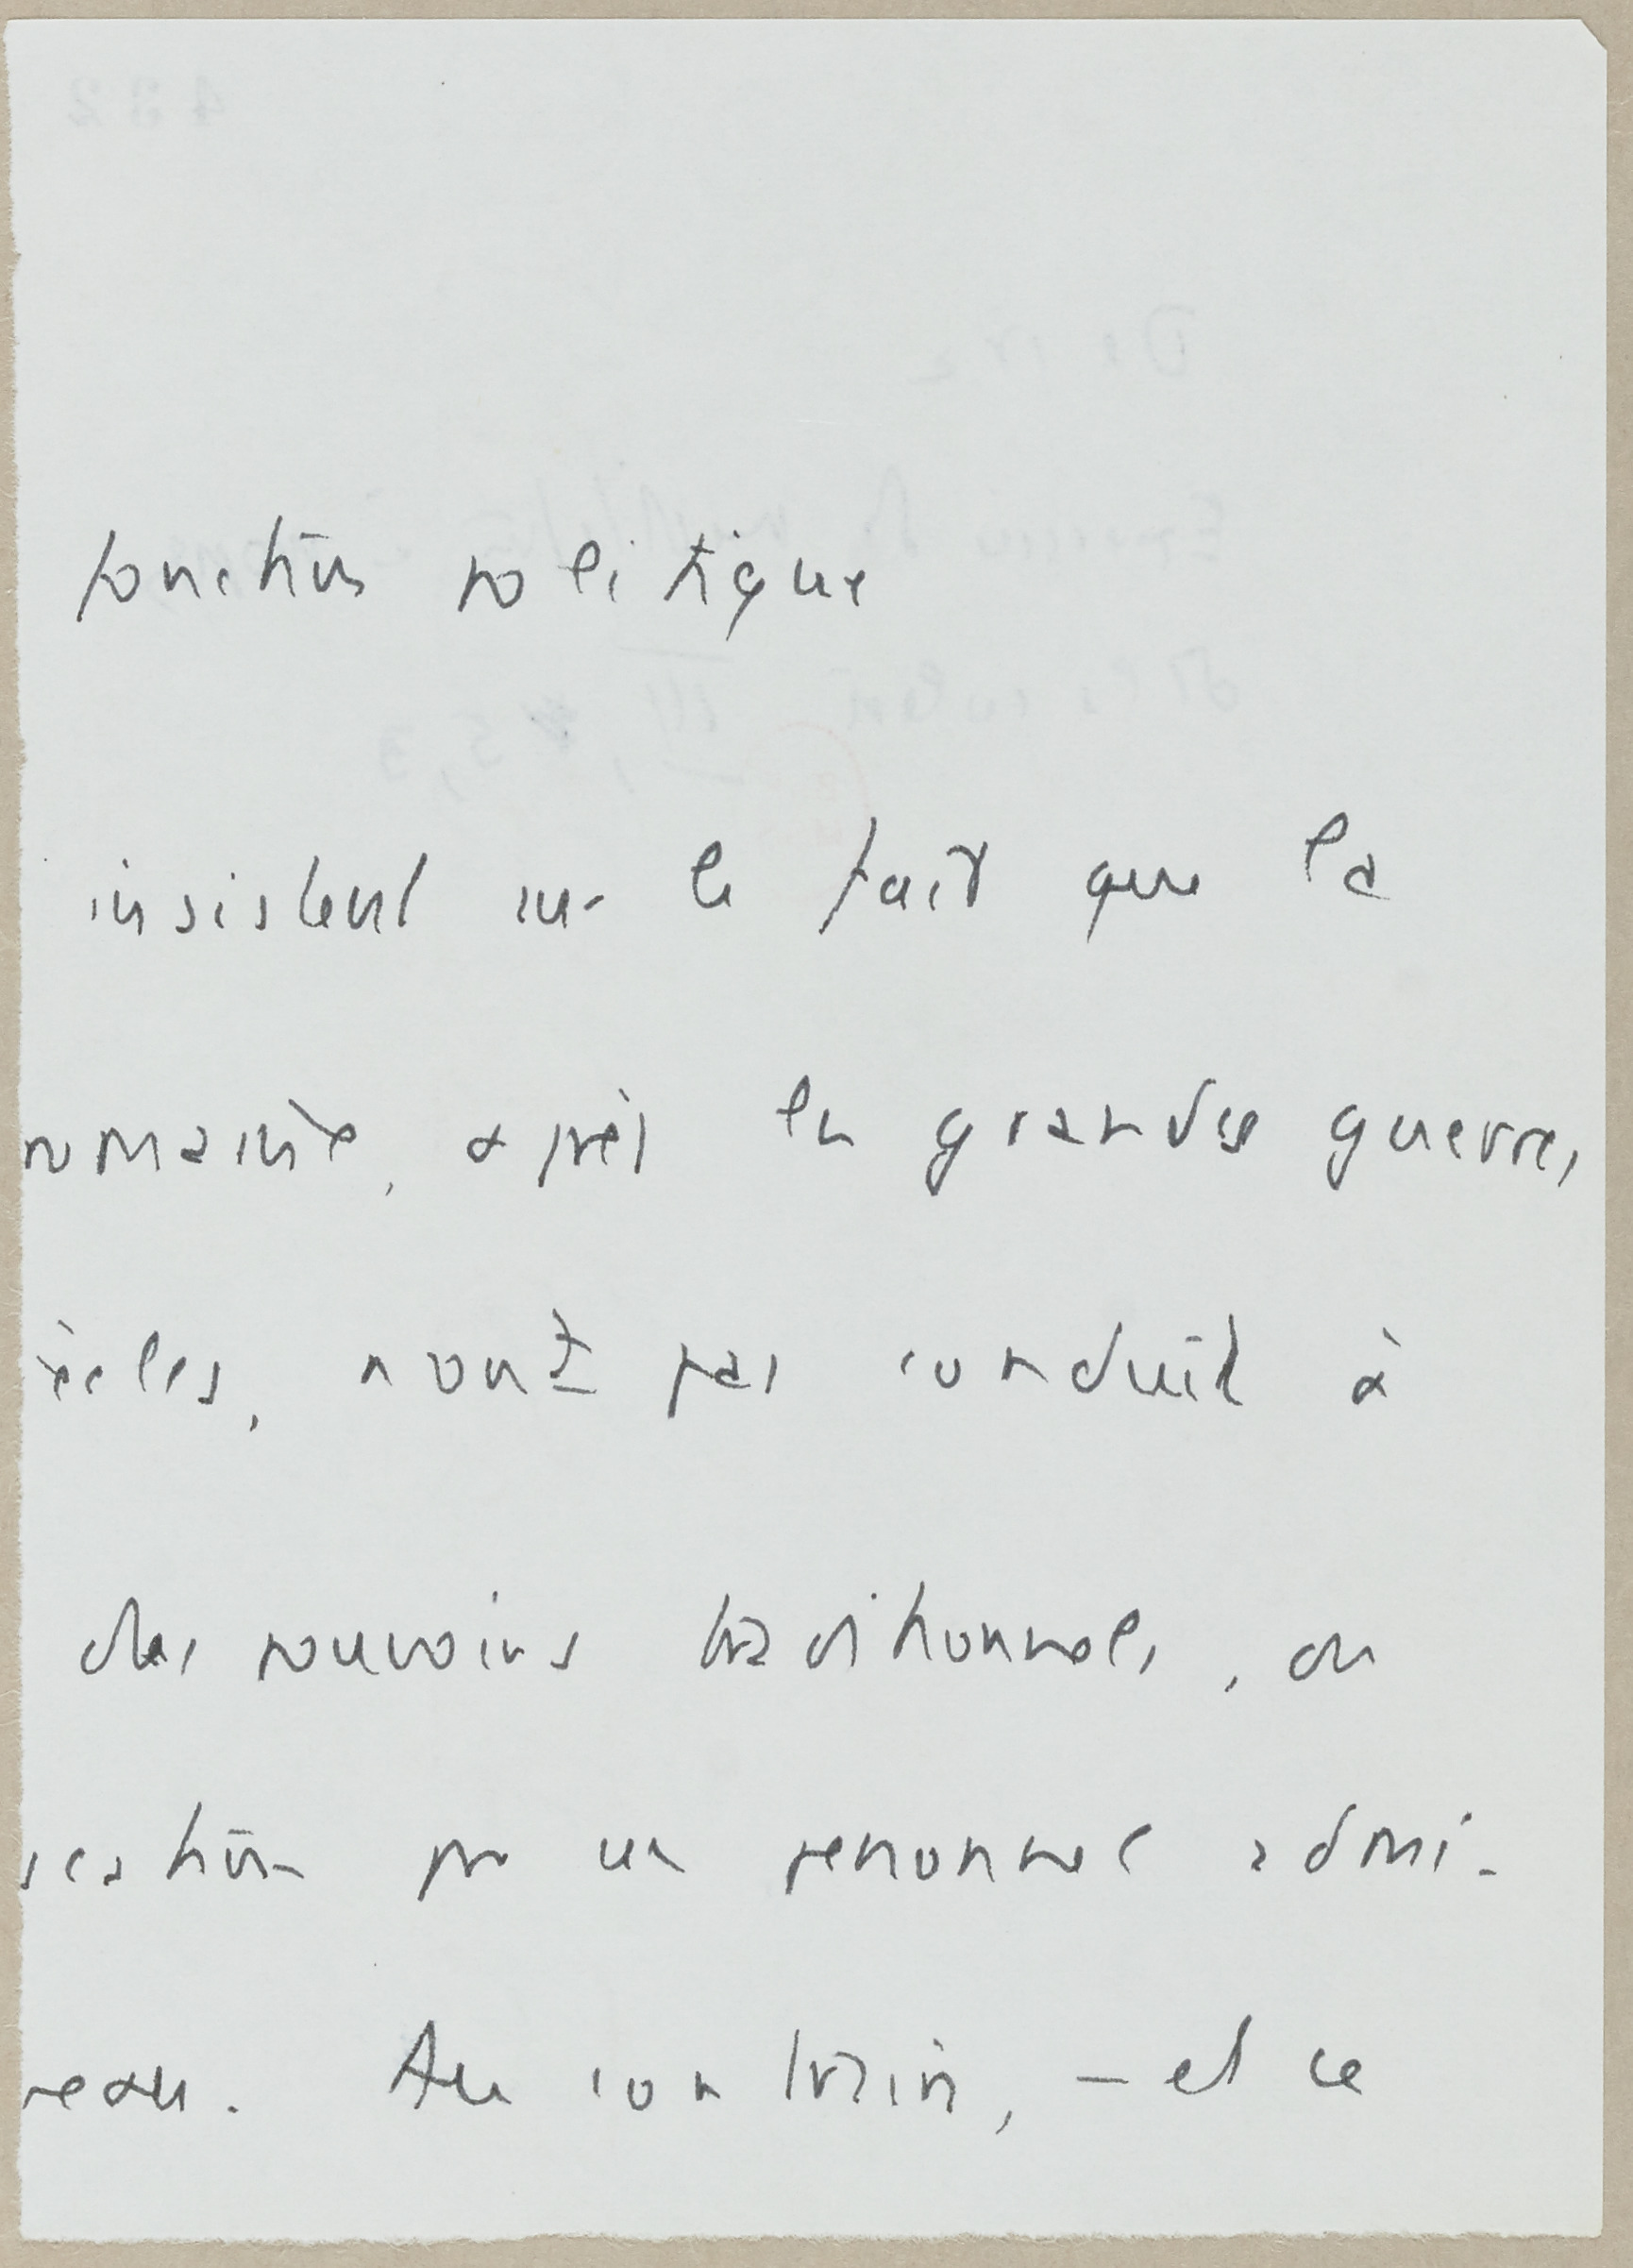 fonction politique
insistent sur le fait que la
romaine, après les grandes guerres
ècles, n'ont pas conduit à
des pouvoirs traditionnels, ou
par un personnel admi-
reau. Au contraire, - et ce